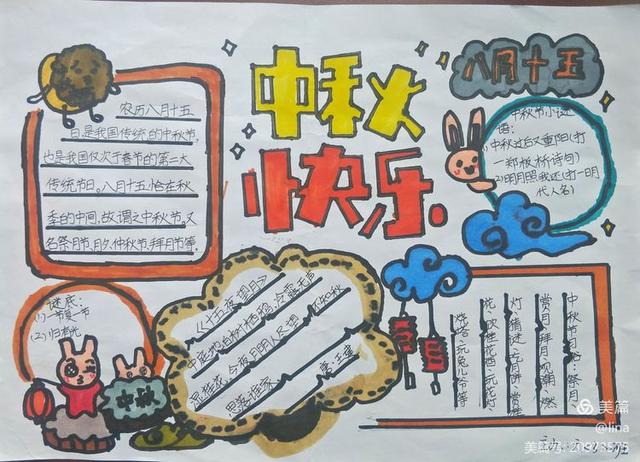 中秋
快乐
八月十五
农历八月十五
日是我国传统的中秋节,
也是我国仅次于春节的第二大
传统节日。八月十五恰在秋
季的中间,故谓之中秋节。又
名祭月节、月夕、仲秋节、拜月节等。
中秋节小谜
语:
1)中秋过后又重阳(打
一郑板桥诗句)
2)明月照我还(打一明
代人名)
谜底:
(1)一节复一节
(2)归有光
中秋
《十五夜望月》
唐:王建
中庭地白树栖鸦,冷露无声
今夜月明人尽望,不知秋
思落谁家。
中秋节习俗:祭月、
赏月、拜月、观潮、燃
灯、猜谜、吃月饼、赏桂
花、饮桂花酒、玩花灯、
烧塔、玩兔儿爷等
美篇
@lina
美篇号:21973575